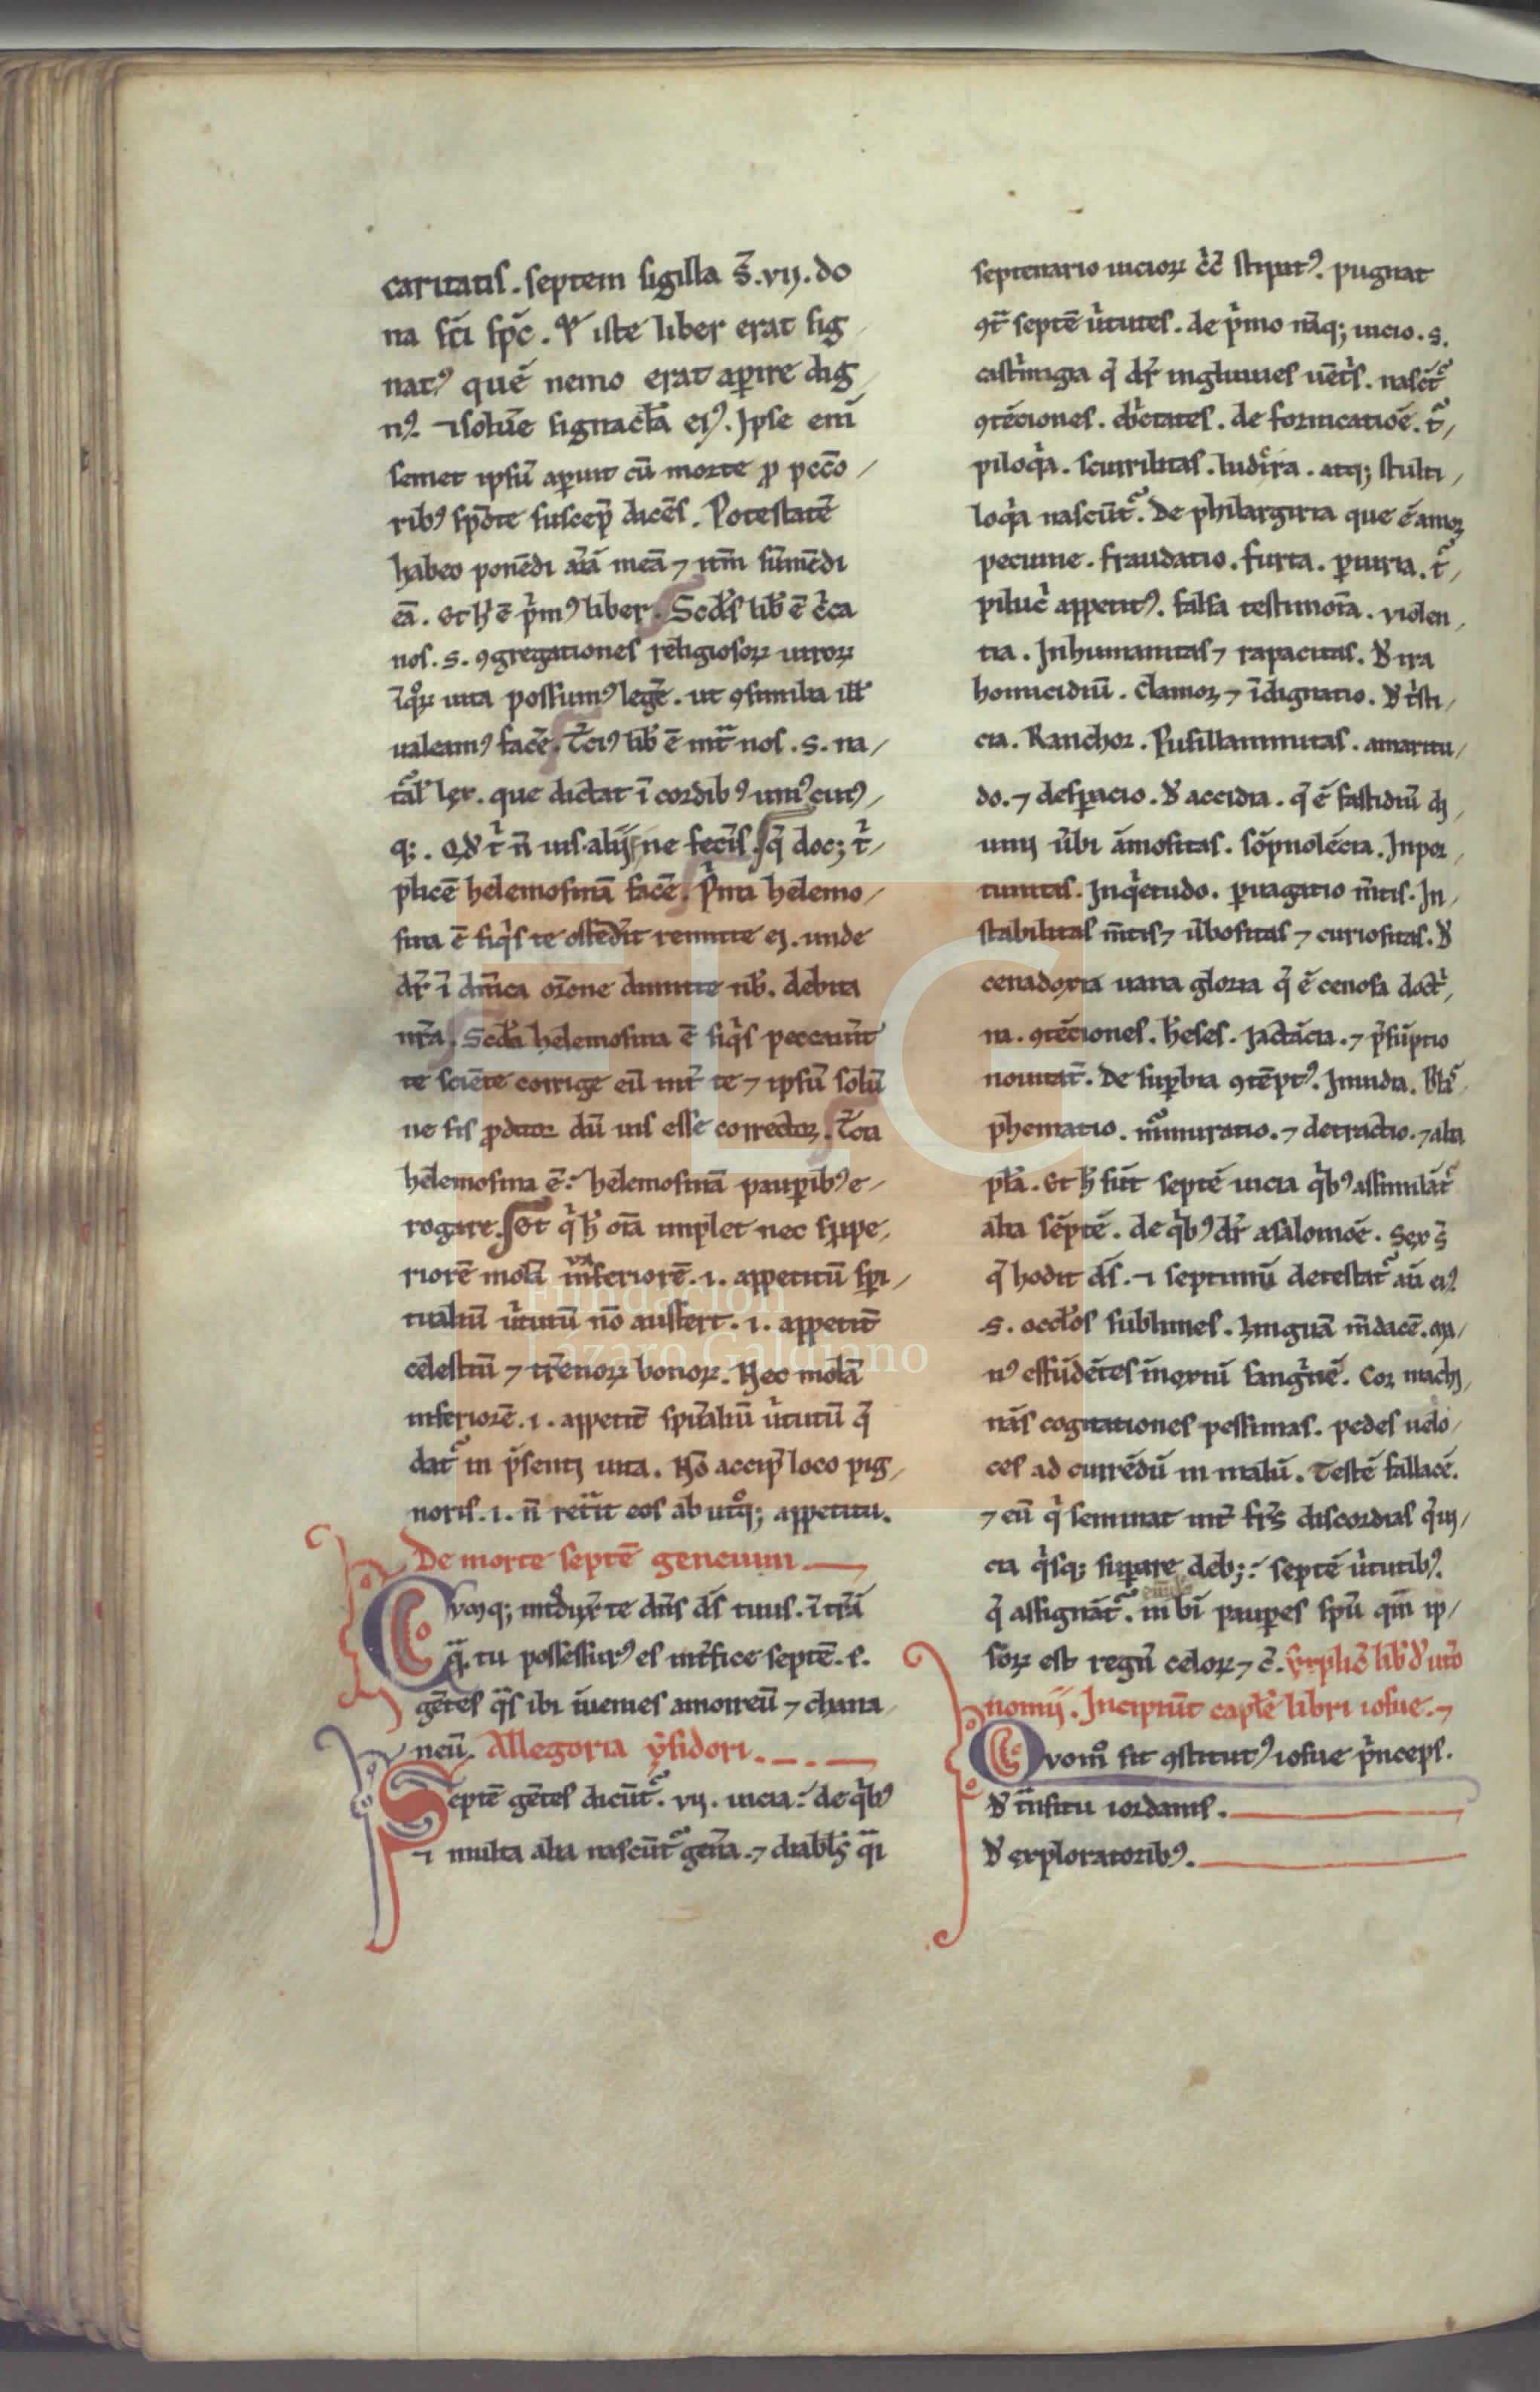 caritatis. septem sigilla s̄. vij. do
na sc̄i sp̄c. P iste liber erat sig
natꝰ quē nemo erat aꝑire dig
nꝰ ⁊ soluēe signac̄la eiꝰ. Ipse eni̅
semet ipsū aꝑuit cū morte ꝓ pcc̄o
ribꝰ spōte suscep̄ dicēs. Potestatē
habeo ponēdi aı̅ā meā ⁊ itm̄ sumēdi
eā. Et h̓ ē p̓mꝰ liber. Scd̓s lib̓ ē c̓ca
nos. s. ꝯgregationes religiosoꝝ uiroꝝ
ı̅ qͦꝝ uita possumꝰ legē. ut ꝯsimilia ill̓
ualeamꝰ facē. T̓ciꝰ lib̓ ē int̄ nos. s. na
tāl̓ lex. que dictat ı̅ cordibꝰ uniꝰcuiꝰ
q;. Qd̓ t̓ n̄ uis alij ne fecīs. q̄ doc; t̓
plicē helemosinā facē. P̓ma helemo
sina ē siq̓s te offēdit remitte ei. unde
dr̄ ı̅ dn̄ica or̄one dimitte nb̓. debita
nr̄a. Scd̓a helemosina ē siq̓s peccauit
te sciēte corrige eū int̓ te ⁊ ipsū solū
ne sis ꝓditor dū uis esse corrector. T̓cia
helemosina ē: helemosinā pauꝑibꝰ e
rogare. Et q̓ h̓ oı̅a implet nec supe
riorē molā inferiorē. i. appetitū sp̄i
tualiū u̓tutū nō aufert. i. appetit̄
celestiū ⁊ tr̄enoꝝ bonoꝝ. Nec molā
inferiorē. i. appetit̄ spūaliū u̓tutū q̄
dat᷑ in p̄senti uita. Nō accip̄ loco pig
noris. i. n̄ ret̓it eos ab utͦq; appetitu.
De morte septē gencium
Cvmq; int̓duxr̄ te dn̄s ds̄ tuus. ı̅ tr̄ā
q̄. tu possessurꝰ es int̓fice septē. s.
gētes q̄s ibi īuenies amorreū ⁊ chana
neū. Allegoria ẏsidori.
Septē gētes dicūt᷑. vij. uicia: de q̓bꝰ
⁊ multa alia nascūt᷑ gn̄a. ⁊ diabl̓s q̄i
septenario uicioꝝ c̓c̄ stipatꝰ. pugnat
ꝯt̄ septē u̓tutes. de p̓mo nāq; uicio. s.
castrimagia q̄ dr̄ ingluuies uēt̓s. nasct᷑
ꝯtēciones. eb̓ctates. de fornicatioē. t᷑
piloq̓a. scurrilitas. ludi̓ra. atq; stulti
loq̓a nascūt᷑. De philargiria que ē amoꝝ
pecunie. fraudatio. furta. ꝑiuria. t᷑
piluc̓ appetitꝰ. falsa testimoı̅a. violen
tia. Inhumanitas ⁊ rapacitas. D̓ ira
homicidiū. Clamor, ⁊ ı̅dignatio. D̓ t̓sti
cia. Ranchor. Pusillanimitas. amaritu
do. ⁊ despacio. D̓ accidia. q̄ ē fastidiū di
uinj u̓bi āmositas. sōpnolēcia. Inpor
tunitas. Inq̓etudo. ꝑuagatio m̄tis. In
stabilitas m̄tis ⁊ u̓bositas ⁊ curiositas. D̓
cenadoxia uana gloria q̄ ē cenosa doct̓
na. ꝯtēciones. h̓eses. Jactācia. ⁊ p̄sūptio
nouitat̄. De suꝑbia ꝯtēptꝰ. Inuidia. bla
phematio. m᷑muratio. ⁊ detractio. ⁊ alia
pl̓a. Et h̓ sūt septē uicia q̓bꝰ assimilāt᷑
alia sēptē. de q̓bꝰ dr̄ a salomoē. Sex s̄
q̄ hodit ds̄. ⁊ septimū detestat᷑ aı̅a eiꝰ
.s. occl̓os sublimes. Linguā m̄dacē. ma
nꝰ effūdētes īnoxiū sang̓nē. Cor machi
nās cognationes pessimas. pedes uelo
ces ad currēdū in malū. Testē fallacē.
⁊ eū q̓ seminat int̓ fr̄s discordias q̓ ui
cia q̓sq; suꝑare deb;: septē u̓tutibꝰ.
q̄ assignāt᷑. in bı̅ pauꝑes spū qm̄ ip
soꝝ est regnū celoꝝ ⁊ c̄. Explic̄ lib̓ d̓ utro
nomij. Incipiūt capl̄e libri iosue.
Qvomͦ sit ꝯstitutꝰ iosue p̓nceps.
D̓ trāsitu iordanis.
D̓ exploratoribꝰ.
Fundación
Lázaro Galdiano